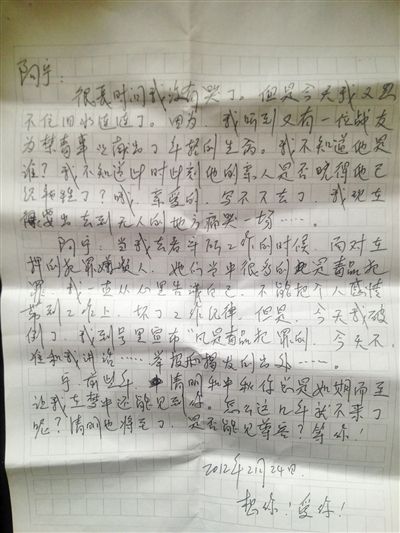 阿宇:
很长时间我没有哭了。但是今天我又忍
不住泪水连连了。因为,我听到又有一位战友
为禁毒事业献出了年轻的生命。我不知道他是
谁?我不知道此时此刻他的亲人是否晓得他已
经牺牲了?哦,亲爱的,写不下去了,我现在
要出去到无人的地方痛哭一场……。
阿宇:当我去看守所工作的时候,面对在
押的犯罪嫌疑人,她们当中很多的是毒品犯
罪,我一直从心里告诫自己,不能把个人感情
带到工作上,坏了工作纪律。但是,今天我破
例了,我到号里宣布“凡是毒品犯罪的,今天不
准和我讲话……举报和揭发的出外……。
宇,前些年,清明和中秋你总是如期而至
让我在梦中还能见到你。怎么这几年就不来了
呢?清明也将至了,是否能见尊容?等你!
2012年2月24日.
想你!爱你!